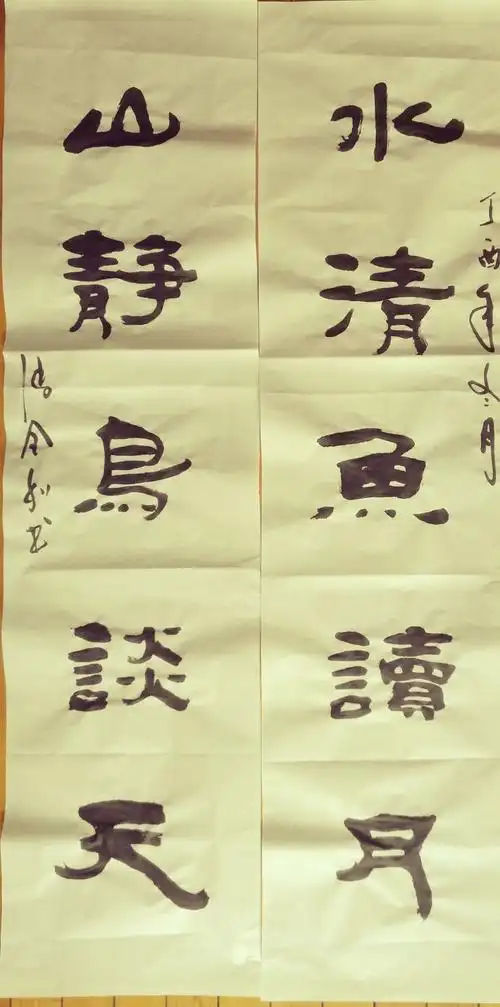 丁酉年冬月
水清魚讀月
山靜鳥談天
书